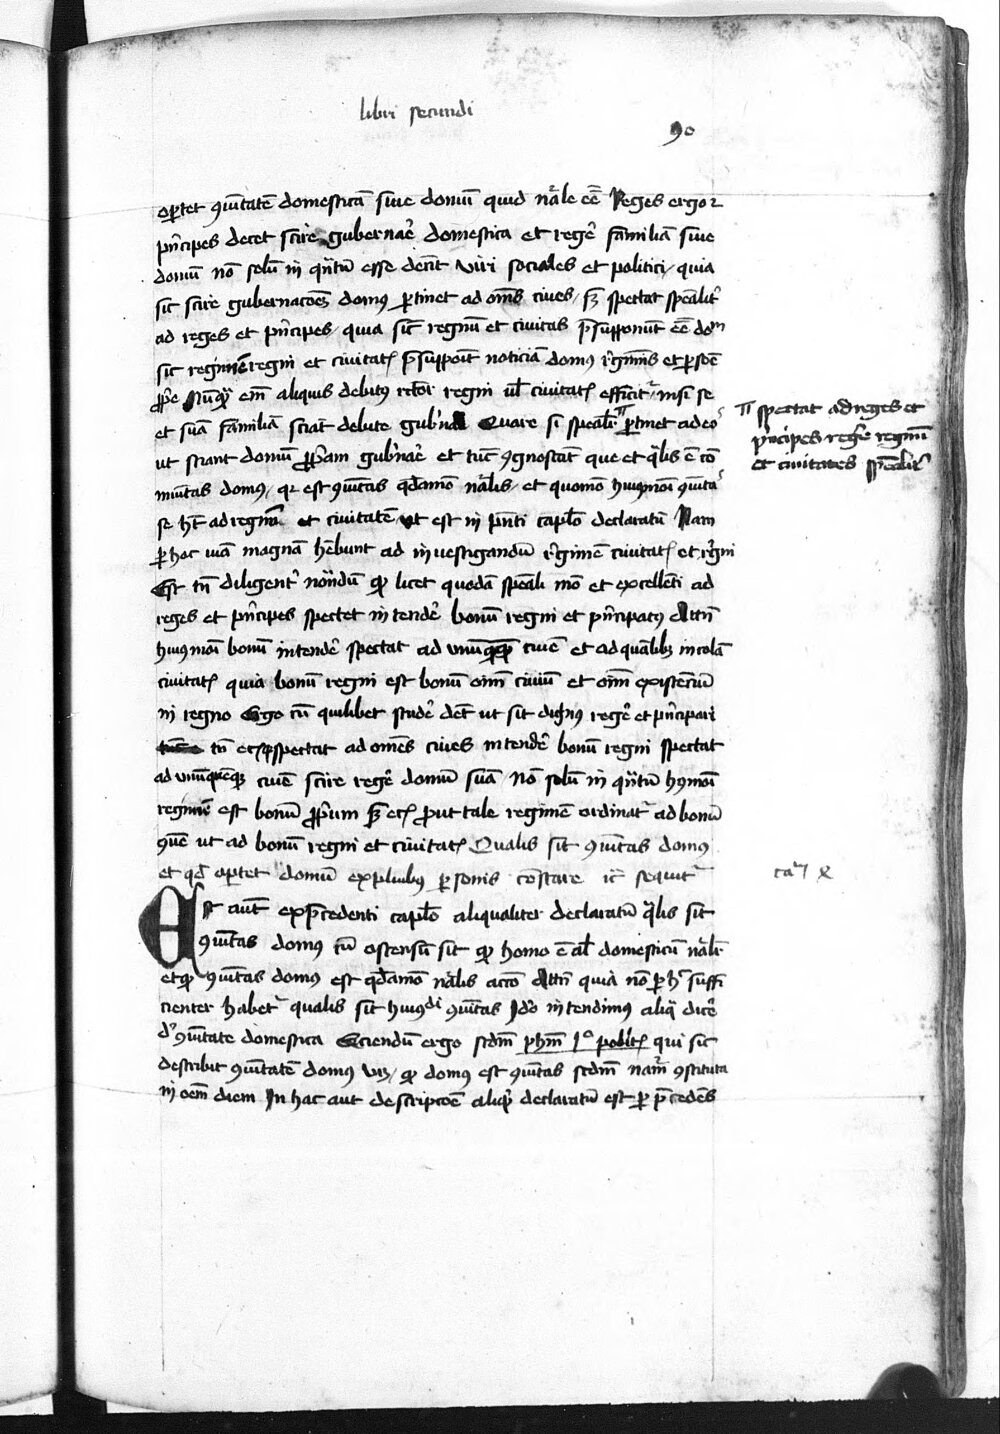 libri secundi
90
oportet cōitatē domesticā siue domū quid nāle eē Reges ergo
pncipes decet scire gubernar̄ domestica et reger̄ familiā siue
domū nō solū in qntū esse decēt viri sociales et politici / quia
sic scire gubernacōēs domus ptinet ad omēs ciues / sꝫ spectat spēalit
ad reges et pncipes / quia sic regnū et ciuitas psupponūt eē dom
sic regimē regni et ciuitat psuppoīt noticiā domus et
Nūqꝫ em̄ aliquis debitus rector regni ul ciuitat efficit nisi se
et suā familiā sciat debite Quare si spealit ptinet ad eos
ut sciant domū ppam gubnar̄ et tūc cōgnoscāt que et qlis ē cō
mitas domus / qr est cōitas qdāmō nālis / et quomō huiusmōi cōitas
se ht ad regnū et ciuitatē ut est in pnti caplo declaratū Nam
p hoc uiā magnā hēbunt ad inuestigandū rgimē ciuitat et rgni
Est tn̄ diligent notādū qꝫ licet quodā speali mō et excellēti ad
reges et pncipes spectet intendēr bonū regni et pncipatus Attn̄
huiusmōi bonū intendēr spectat ad unūquēqꝫ ciuē et ad quālibꝫ incolā
ciuitat quia bonū regni est bonū oīm ciuiū et oīm existenciū
in regno Ergo cū quilibet studēr dēt ut sit dignus reger̄ et pncipari
tn̄ etsi spectat ad omēs ciues intendēr bonū regni spectat
ad unūquēqꝫ ciuē scire reger̄ domū suā / nō solū in qntū hmōi
regimē est bonū ppium sꝫ et put tale regimē ordinat ad bonū
cōe ut ad bonū regni et ciuitat Qualis sit cōitas domus
et qd oportet domū ex pluribus psonis constare sequit
Est aut ex pcedenti caplo aliqualiter declaratū qlis sit
cōitas domus cū ostensū sit qꝫ homo ē aīal domesticū nālit
et qꝫ cōitas domus est qdāmō nālis Attn̄ quia nō p h suffi
cienter habet qualis sit huiusdi cōitas Ido intendimus aliqa dicer̄
d cōitate domestica Sciendū ergo scdm phm 1º polit qui sic
describit cōitatē domus viꝫ / qꝫ domus est cōitas scdm nam cōstituta
in oēm diem In hac aut descripcōe aliqd declaratū est p pcedēs
spectat ad reges et
pncipes reger̄ regnū
et ciuitates spēalit
ca